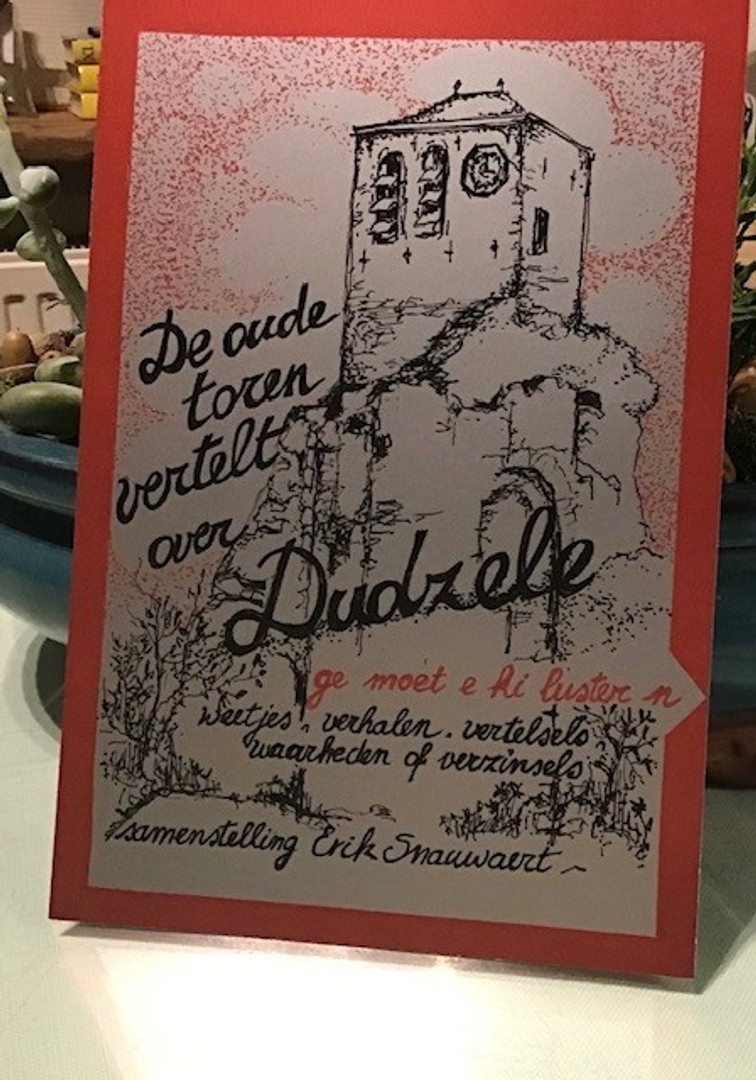 De oude
toren
vertelt
over
Dudzele
ge moet e ki luster n
weetjes, verhalen. vertelsels
waarheden of verzinsels
samenstelling Erik Snauwaert